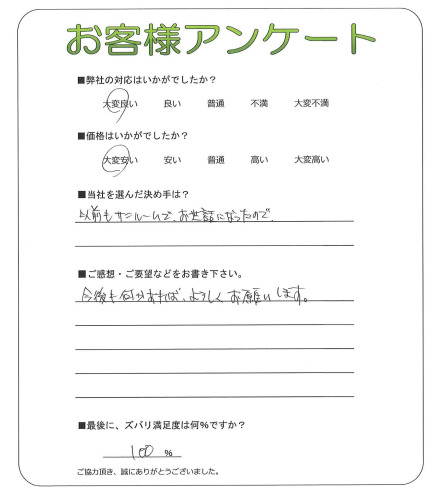 お客様アンケート
■弊社の対応はいかがでしたか？
大変良い 良い 普通 不満 大変不満
■価格はいかがでしたか？
大変安い 安い 普通 高い 大変高い
■当社を選んだ決め手は？
以前もサンルームで、お世話になったので、
■ご感想・ご要望などをお書き下さい。
今後も何かあれば、よろしくお願いします。
■最後に、ズバリ満足度は何％ですか？
100 ％
ご協力頂き、誠にありがとうございました。